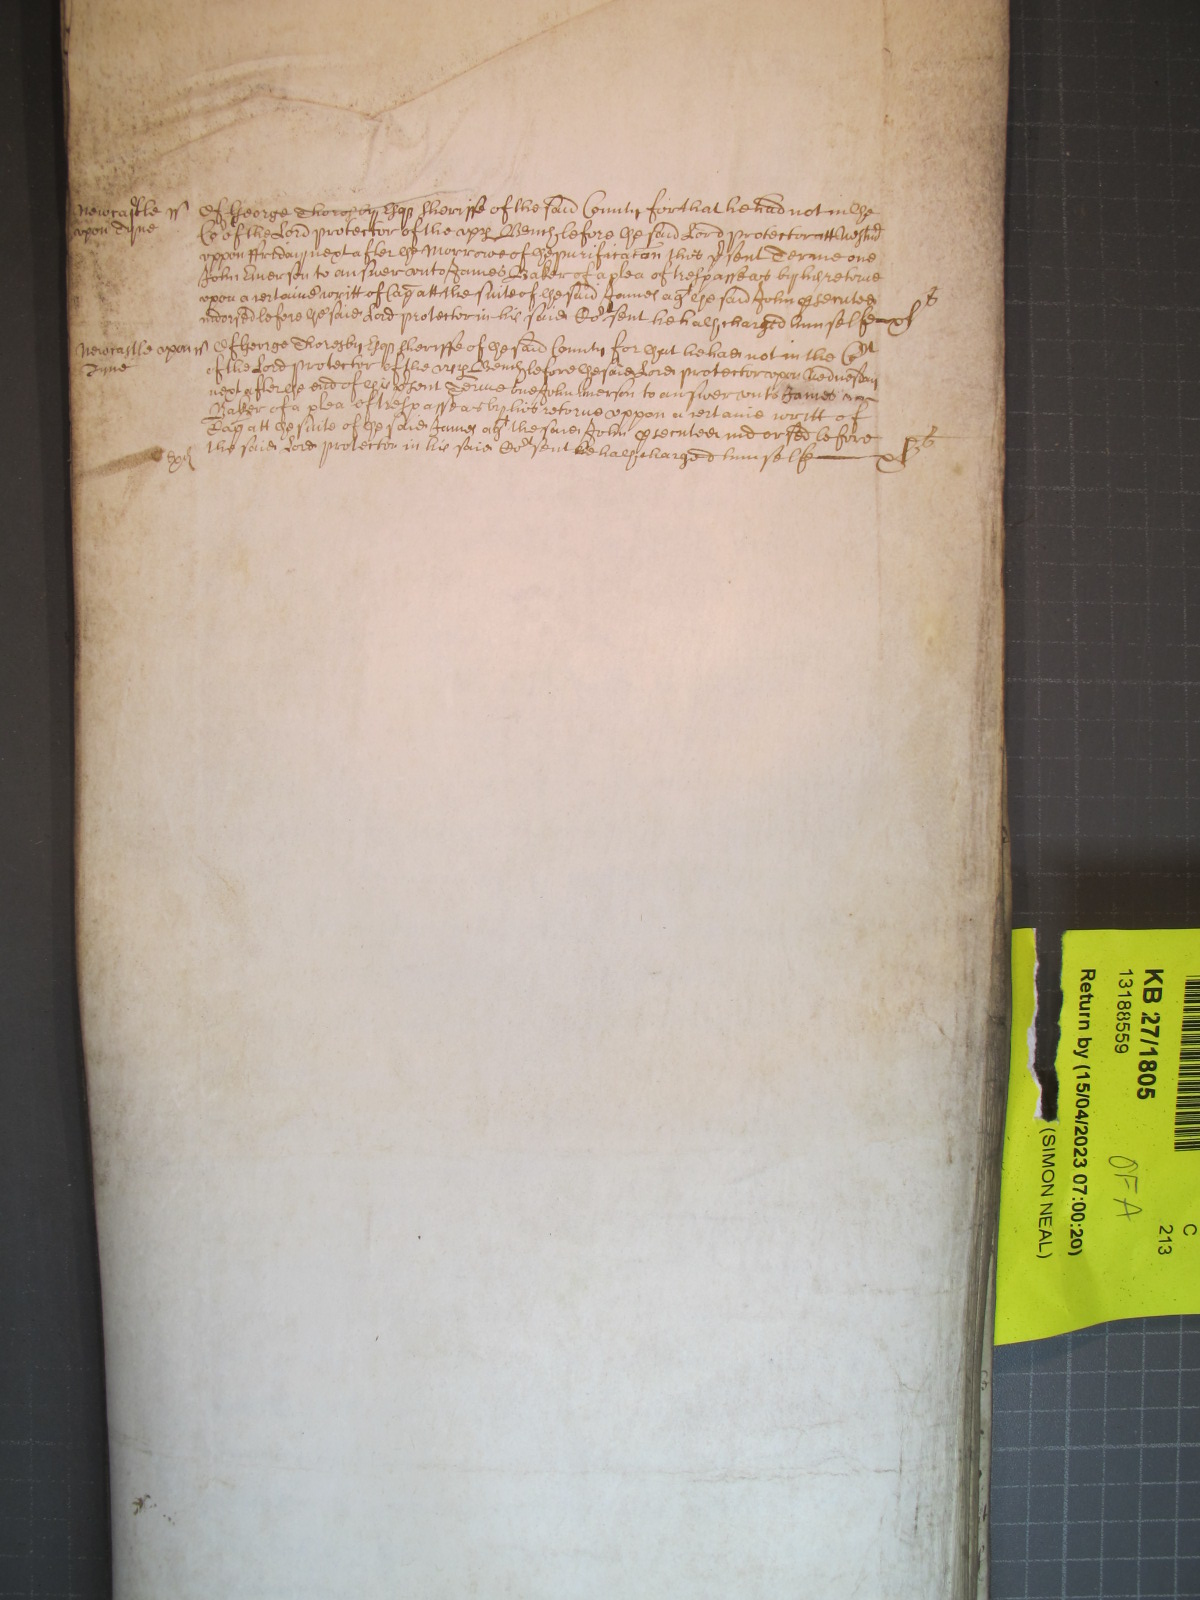 Newcastle ss Of George Thoresby Esqr Sheriffe of the said County for that he had not in the
upon Tyne Cot of the Lord Protector of the upp Bench before the said Lord Protector att Westmd
uppon ffriday next after the Morrowe of the purificaton this psent Terme one
John Emerson to answer unto James Baker of a plea of trespasse as by his retorne
upon a certaine writt of Cap att the suite of the said James agt the said John psecuted
indorsed before the said Lord Protector in his said Cot sent he hath charged himselfe xl s
Newcastle upon ss Of George Thoresby Esqr Sheriffe of the said County for that he had not in the Cot
Tyne of the Lord Protector of the upp Bench before the said Lord Protector upon Wednesday
next after the end of this psent Terme one John Emerson to answer unto James
Baker of a plea of trespasse as by his retorne uppon a certaine writt of
Cap att the suite of the said James agt the said John psecuted indorsed before
the said Lord Protector in his said Cot sent he hath charged himselfe
C
213
KB 27/1805
13188559
OFA
Return by (15/04/2023 07:00:20)
(SIMON NEAL)